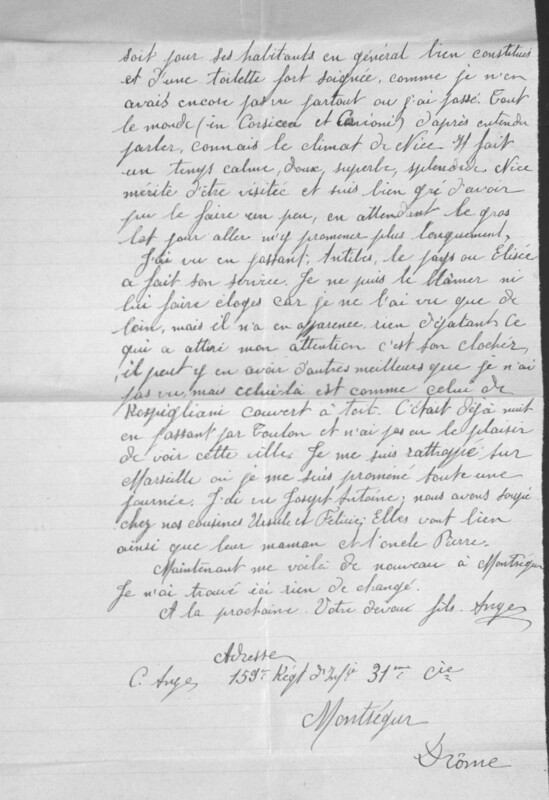 soit pour ses habitants en général bien constitués
et d'une toilette fort soignée, comme je n'en
avais encore pas vu partout ou j'ai passé. Tout
le monde (in Corsica et ) d'après entendre
parler, connais le climat de Nice. Il fait
un temps calme, doux, superbe, splendide. Nice
mérite d'être visitée et suis bien gré d'avoir
pu le faire un peu, en attendant le gros
lot pour aller m'y promener plus longuement.
J'ai vu en passant, Antibes, le pays ou Elisée
a fait son service. Je ne puis le blâmer ni
lui faire éloges car je ne l'ai vu que de
loin, mais il n'a en apparence rien d'épatant. Ce
qui a attiré mon attention c'est son clocher,
il peut y en avoir d'autres meilleurs que je n'ai
pas vu, mais celui là est comme celui de
Rospigliani couvert à toit. C'était déjà nuit
en passant par Toulon et n'ai pas eu le plaisir
de voir cette ville. Je me suis rattrappé sur
Marseille où je me suis promené toute une
journée. J'ai vu Joseph Antoine; nous avons soupé
chez nos cousines Ursule et Félicie; Elles vont bien
ainsi que leur maman et l'oncle Pierre.
Maintenant me voilà de nouveau à Montségur
Je n'ai trouvé ici rien de changé.
A la prochaine. Votre devoué fils. Ange
Adresse
C. Ange 159e Régt d'Inf.ie 31me Cie
Montségur
Drôme